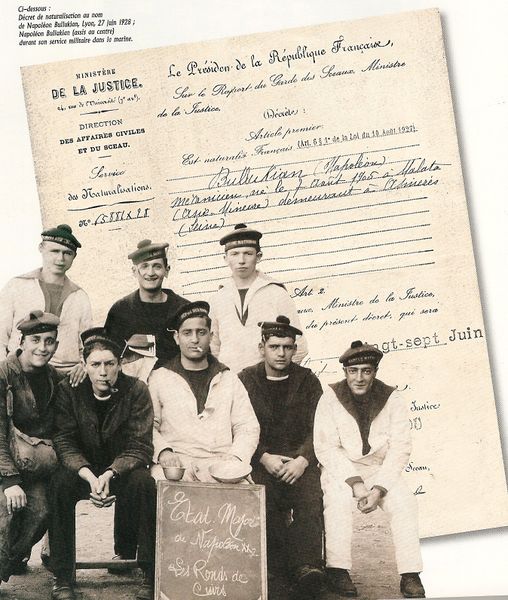 Ci-dessous :
Décret de naturalisation au nom
de Napoléon Bullukian, Lyon, 27 juin 1928 ;
Napoléon Bullukian (assis au centre)
durant son service militaire dans la marine.
MINISTÈRE
DE LA JUSTICE.
DIRECTION
DES AFFAIRES CIVILES
ET DU SCEAU.
Service
des Naturalisations.
Nº 15881 X 28
Le Président de la République Française,
Sur le Rapport du Garde des Sceaux, Ministre
de la Justice,
Décrète :
Article premier.
Est naturalisé Français (Art. 6 § 1º de la Loi du 10 Août 1927).
Bullukian (Napoléon)
mécanicien, né le 7 août 1905 à Malatia
(Asie Mineure) demeurant à Asnières
(Seine)
Art 2.
, Ministre de la Justice,
du présent décret, qui sera
ngt-sept Juin
Justice
Sceau,
Etat Major
de Napoléon
Les Ronds de
Cuirs